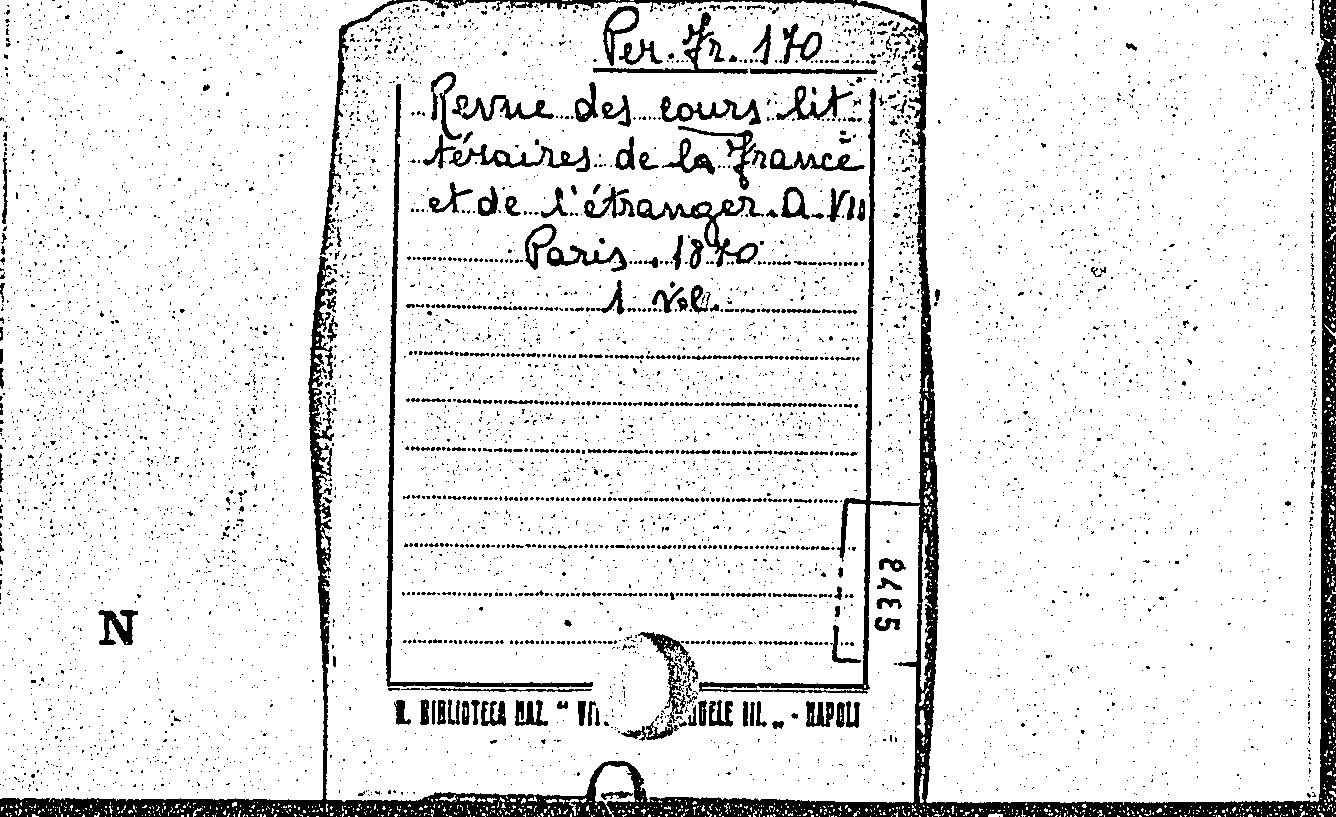 Per. Fr. 170
Revue des cours lit
téraires de la France
et de l'étranger. A. VII
Paris. 1870
1 Vol.
N
R. BIBLIOTECA NAZ. " III. „ - NAPOLI